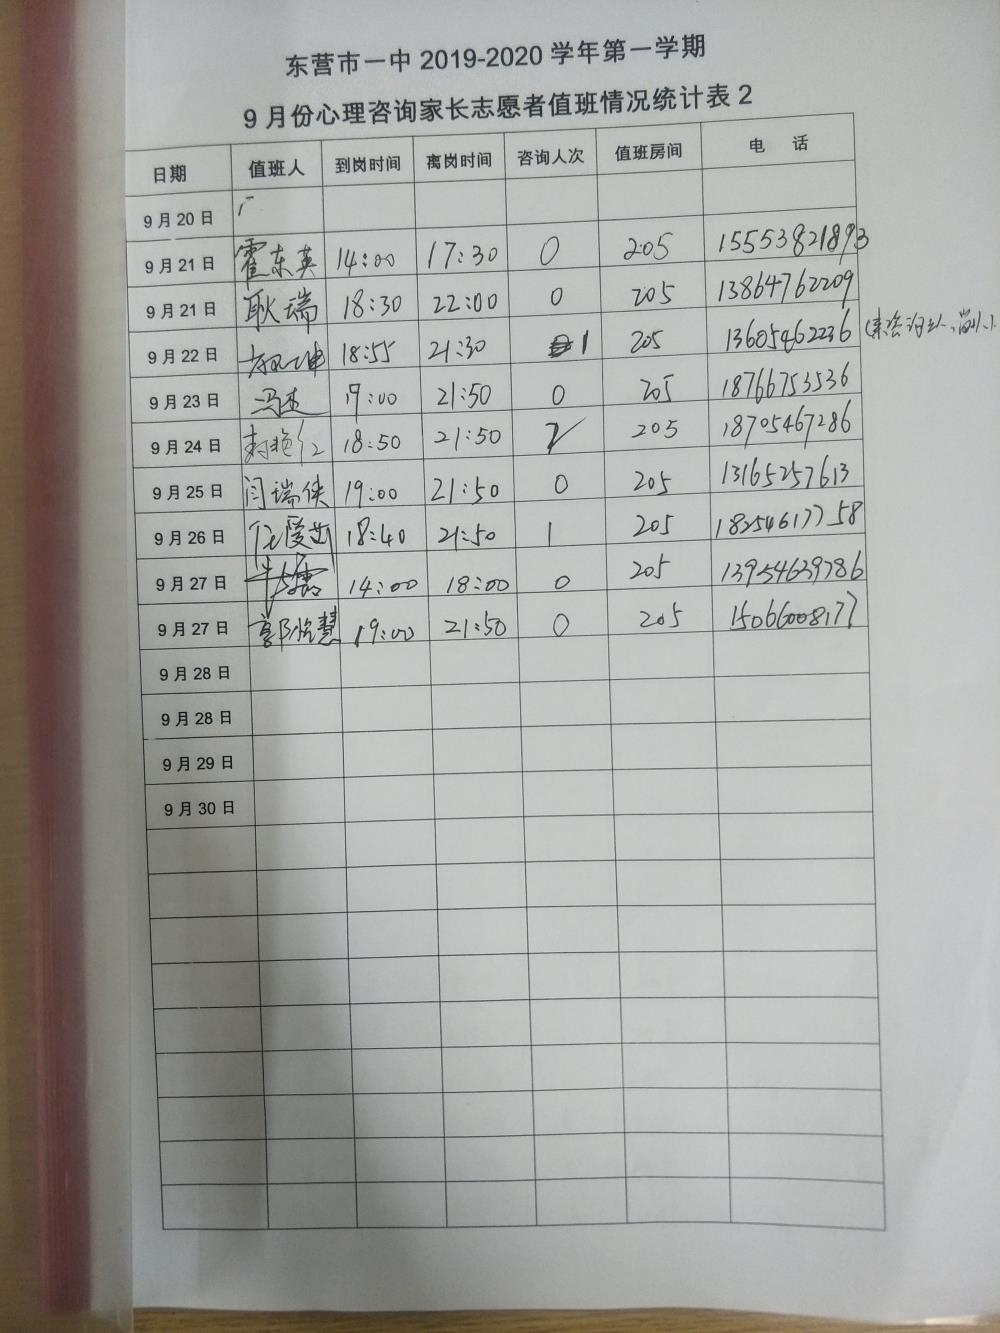 东营市一中 2019-2020 学年第一学期
9 月份心理咨询家长志愿者值班情况统计表 2
日期 值班人 到岗时间 离岗时间 咨询人次 值班房间 电 话
9 月 20 日
9 月 21 日 霍东英 14:00 17:30 0 205 15553821893
9 月 21 日 耿瑞 18:30 22:00 0 205 13864762209
9 月 22 日 18:55 21:30 1 205 13605462236
9 月 23 日 冯 19:00 21:50 0 205 18766753536
9 月 24 日 18:50 21:50 2 205 18705467286
9 月 25 日 闫瑞侠 19:00 21:50 0 205 13165257613
9 月 26 日 任爱 18:40 21:50 1 205 18254617758
9 月 27 日 14:00 18:00 0 205 13954639786
9 月 27 日 郭 慧 19:00 21:50 0 205 15066008177
9 月 28 日
9 月 28 日
9 月 29 日
9 月 30 日